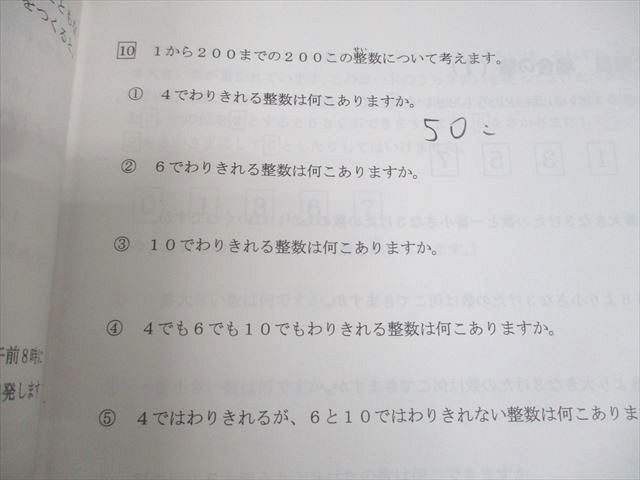 10 1から200までの200この整数について考えます。
① 4でわりきれる整数は何こありますか。
50こ
② 6でわりきれる整数は何こありますか。
③ 10でわりきれる整数は何こありますか。
④ 4でも6でも10でもわりきれる整数は何こありますか。
⑤ 4ではわりきれるが、6と10ではわりきれない整数は何こありま
午前8時に
発します